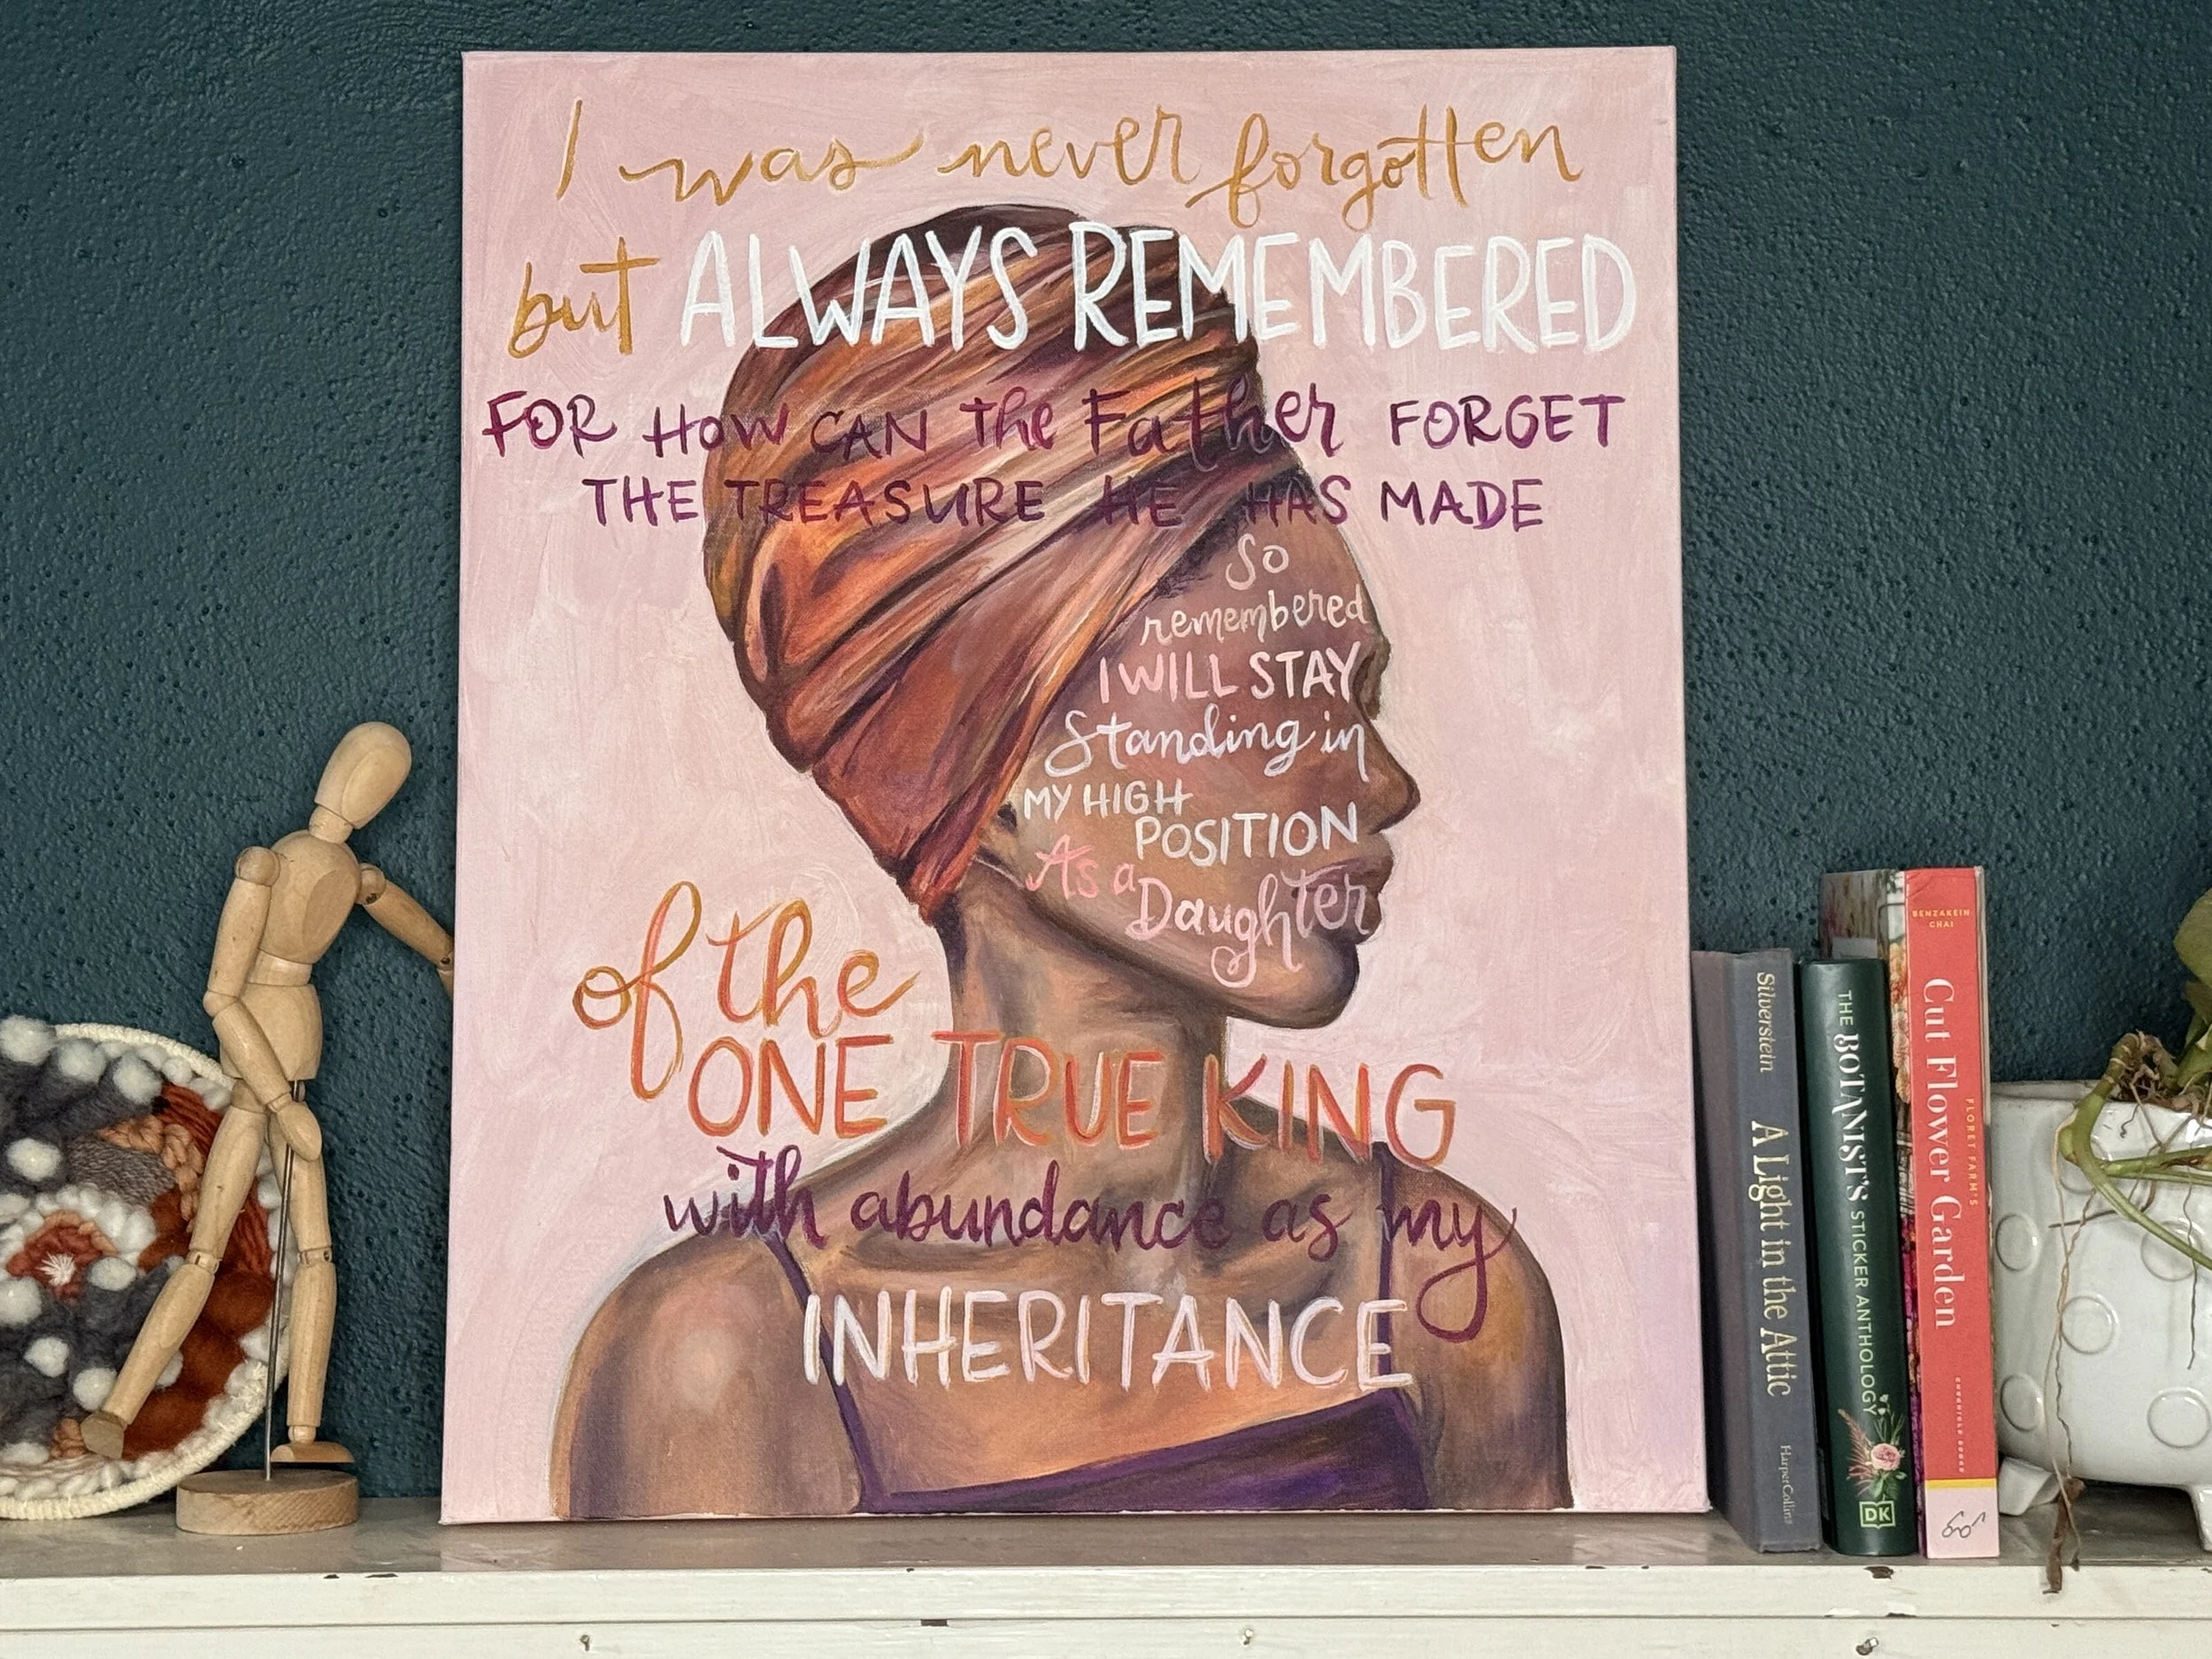 I was never forgotten
but ALWAYS REMEMBERED
FOR HOW CAN The Father FORGET
THE TREASURE HE HAS MADE
So
remembered
I WILL STAY
Standing in
MY HIGH
POSITION
As a
Daughter
of the
ONE TRUE KING
with abundance as my
INHERITANCE
Silverstein
A Light in the Attic
HarperCollins
THE BOTANIST'S STICKER ANTHOLOGY
DK
BENZAKEIN
CHAI
FLORET FARM'S
Cut Flower Garden
CHRONICLE BOOKS